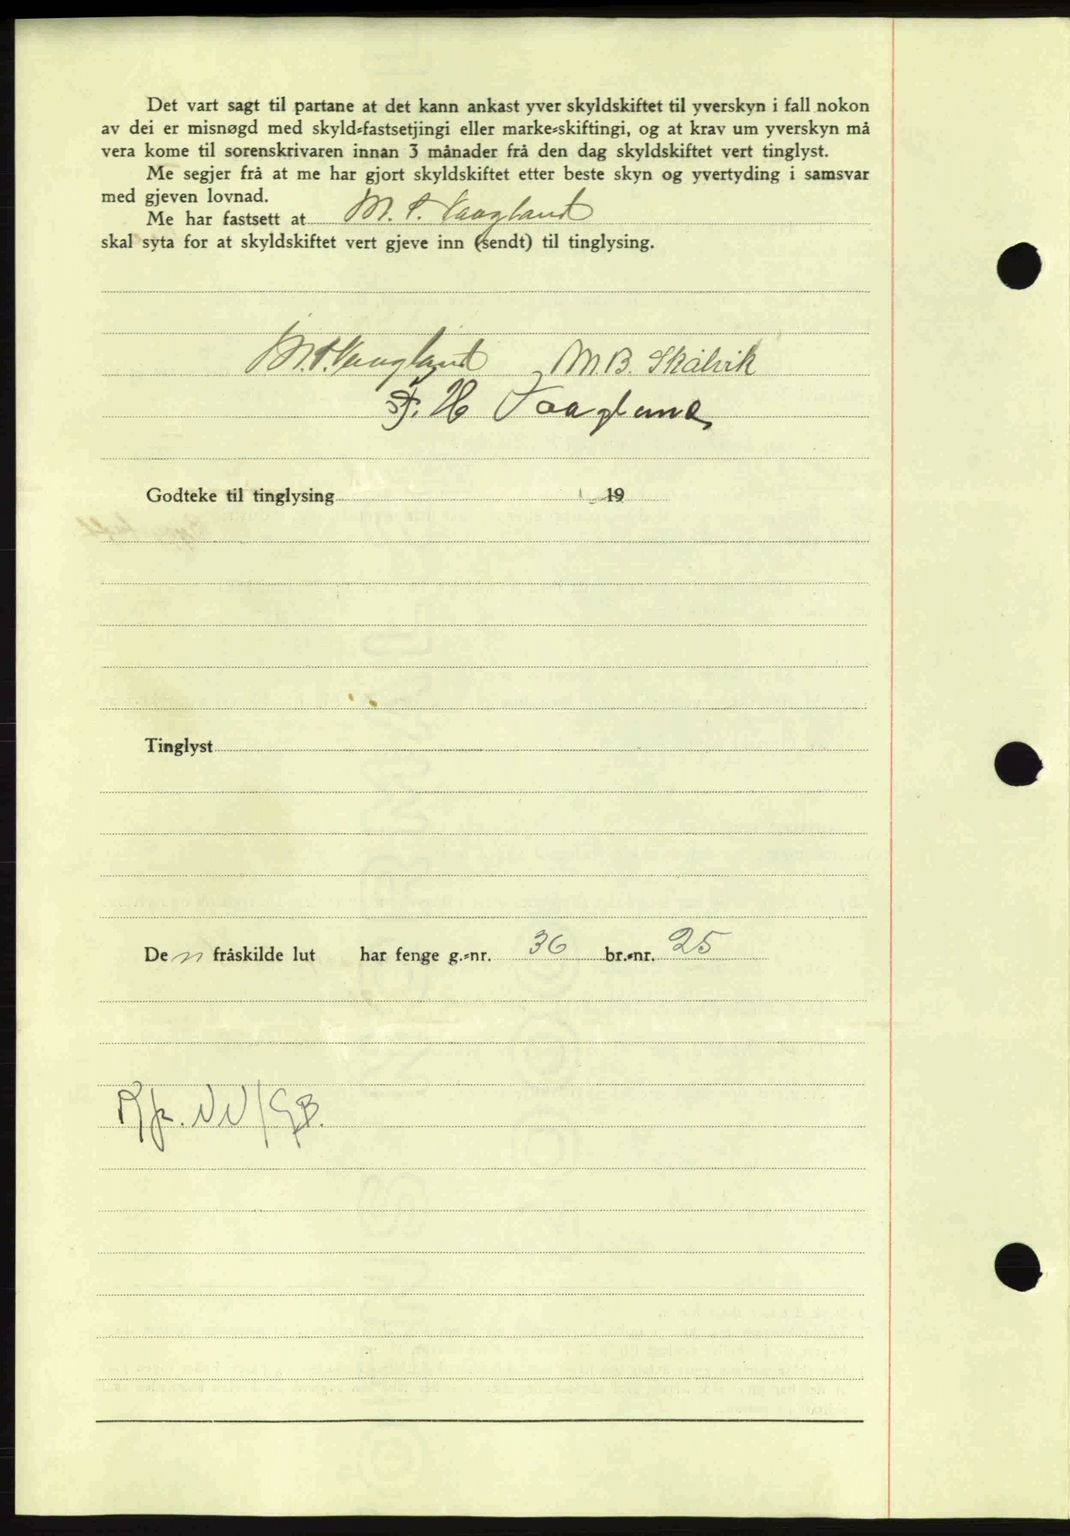 Det vart sagt til partane at det kann ankast yver skyldskiftet til yverskyn i fall nokon
av dei er misnøgd med skyld-fastsetjingi eller marke-skiftingi, og at krav um yverskyn må
vera kome til sorenskrivaren innan 3 månader frå den dag skyldskiftet vert tinglyst.
Me segjer frå at me har gjort skyldskiftet etter beste skyn og yvertyding i samsvar
med gjeven lovnad.
Me har fastsett at M. P. Vaagland
skal syta for at skyldskiftet vert gjeve inn (sendt) til tinglysing.
M. P. Vaagland M. B. Skålvik
F. H Vaagland
Godteke til tinglysing 19
Tinglyst
Den fråskilde lut har fenge g.-nr. 36 br.-nr. 25